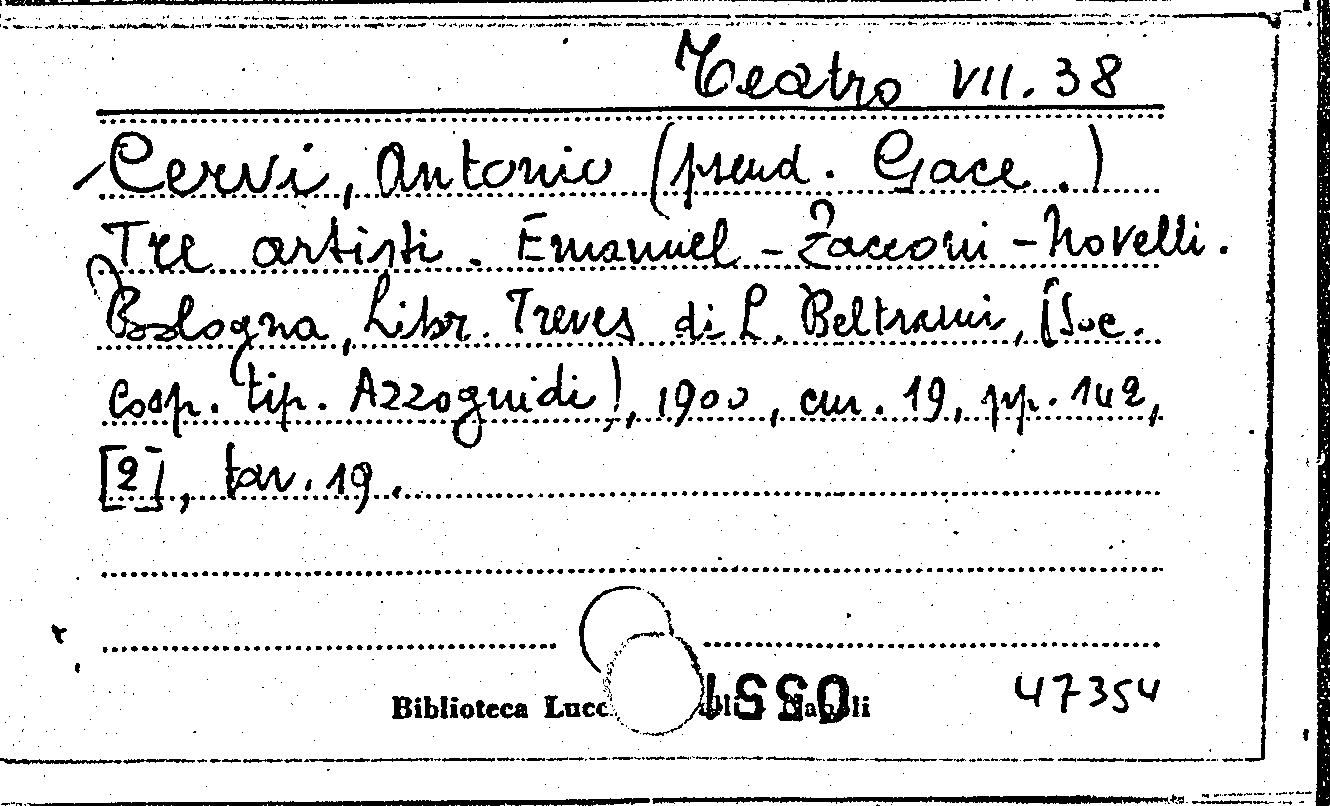 Teatro VII.38
Cervi, Antonio (pseud. Gace.)
Tre artisti. Emanuel - Zacconi - Novelli.
Bologna, Libr. Treves di L. Beltrami, (Soc.
coop. tip. Azzoguidi), 1900, cm. 19, pp. 142,
[2], tav. 19.
Biblioteca Lucc
47354